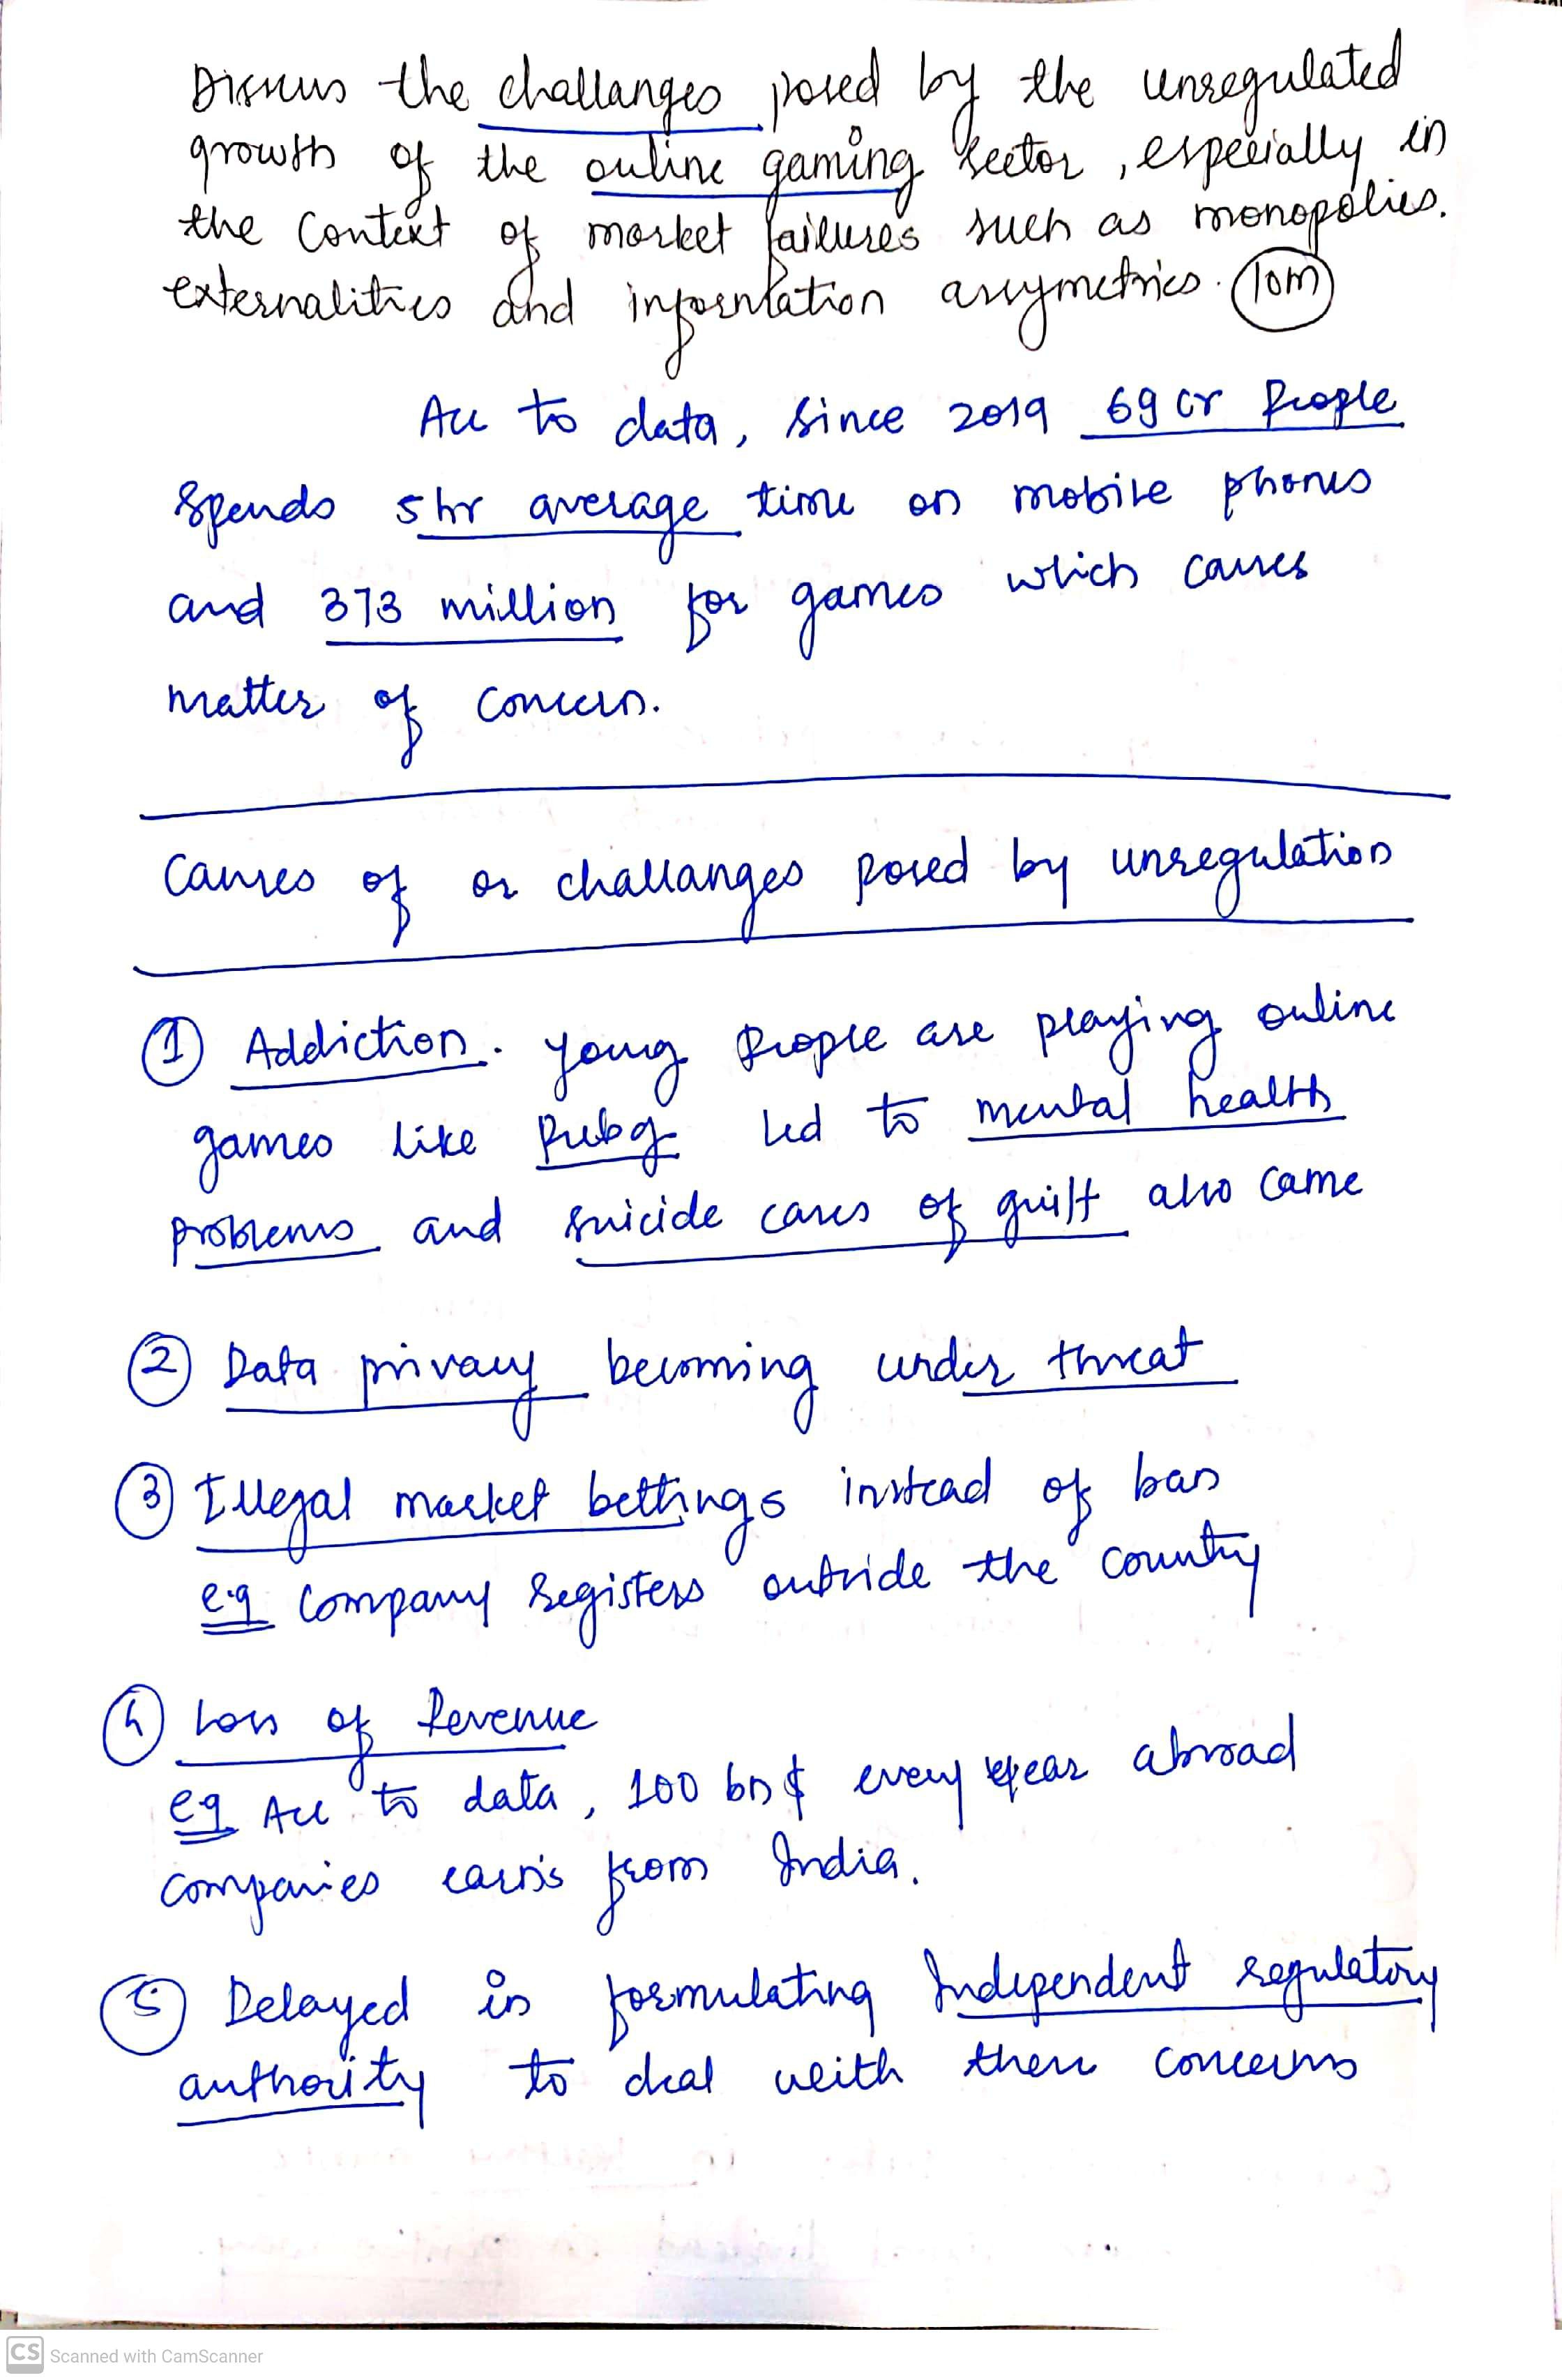 Discuss the challanges posed by the unregulated
growth of the online gaming sector, especially in
the context of market failures such as monopolies.
externalities and information assymetrics. 10m
Acc to data, since 2019 69 cr people
spends 5 hr average time on mobile phones
and 373 million for games which causes
matter of concern.
Causes of or challanges posed by unregulation
① Addiction. young people are playing online
games like Pubg led to mental health
problems and suicide cases of guilt also came
② Data privacy becoming under threat
③ Illegal market bettings instead of ban
e.g company registers outside the country
④ Loss of Revenue
eg Acc to data, 100 bn $ every year abroad
companies earn's from India.
⑤ Delayed in formulating Independent regulatory
authority to deal with these concerns
CS Scanned with CamScanner